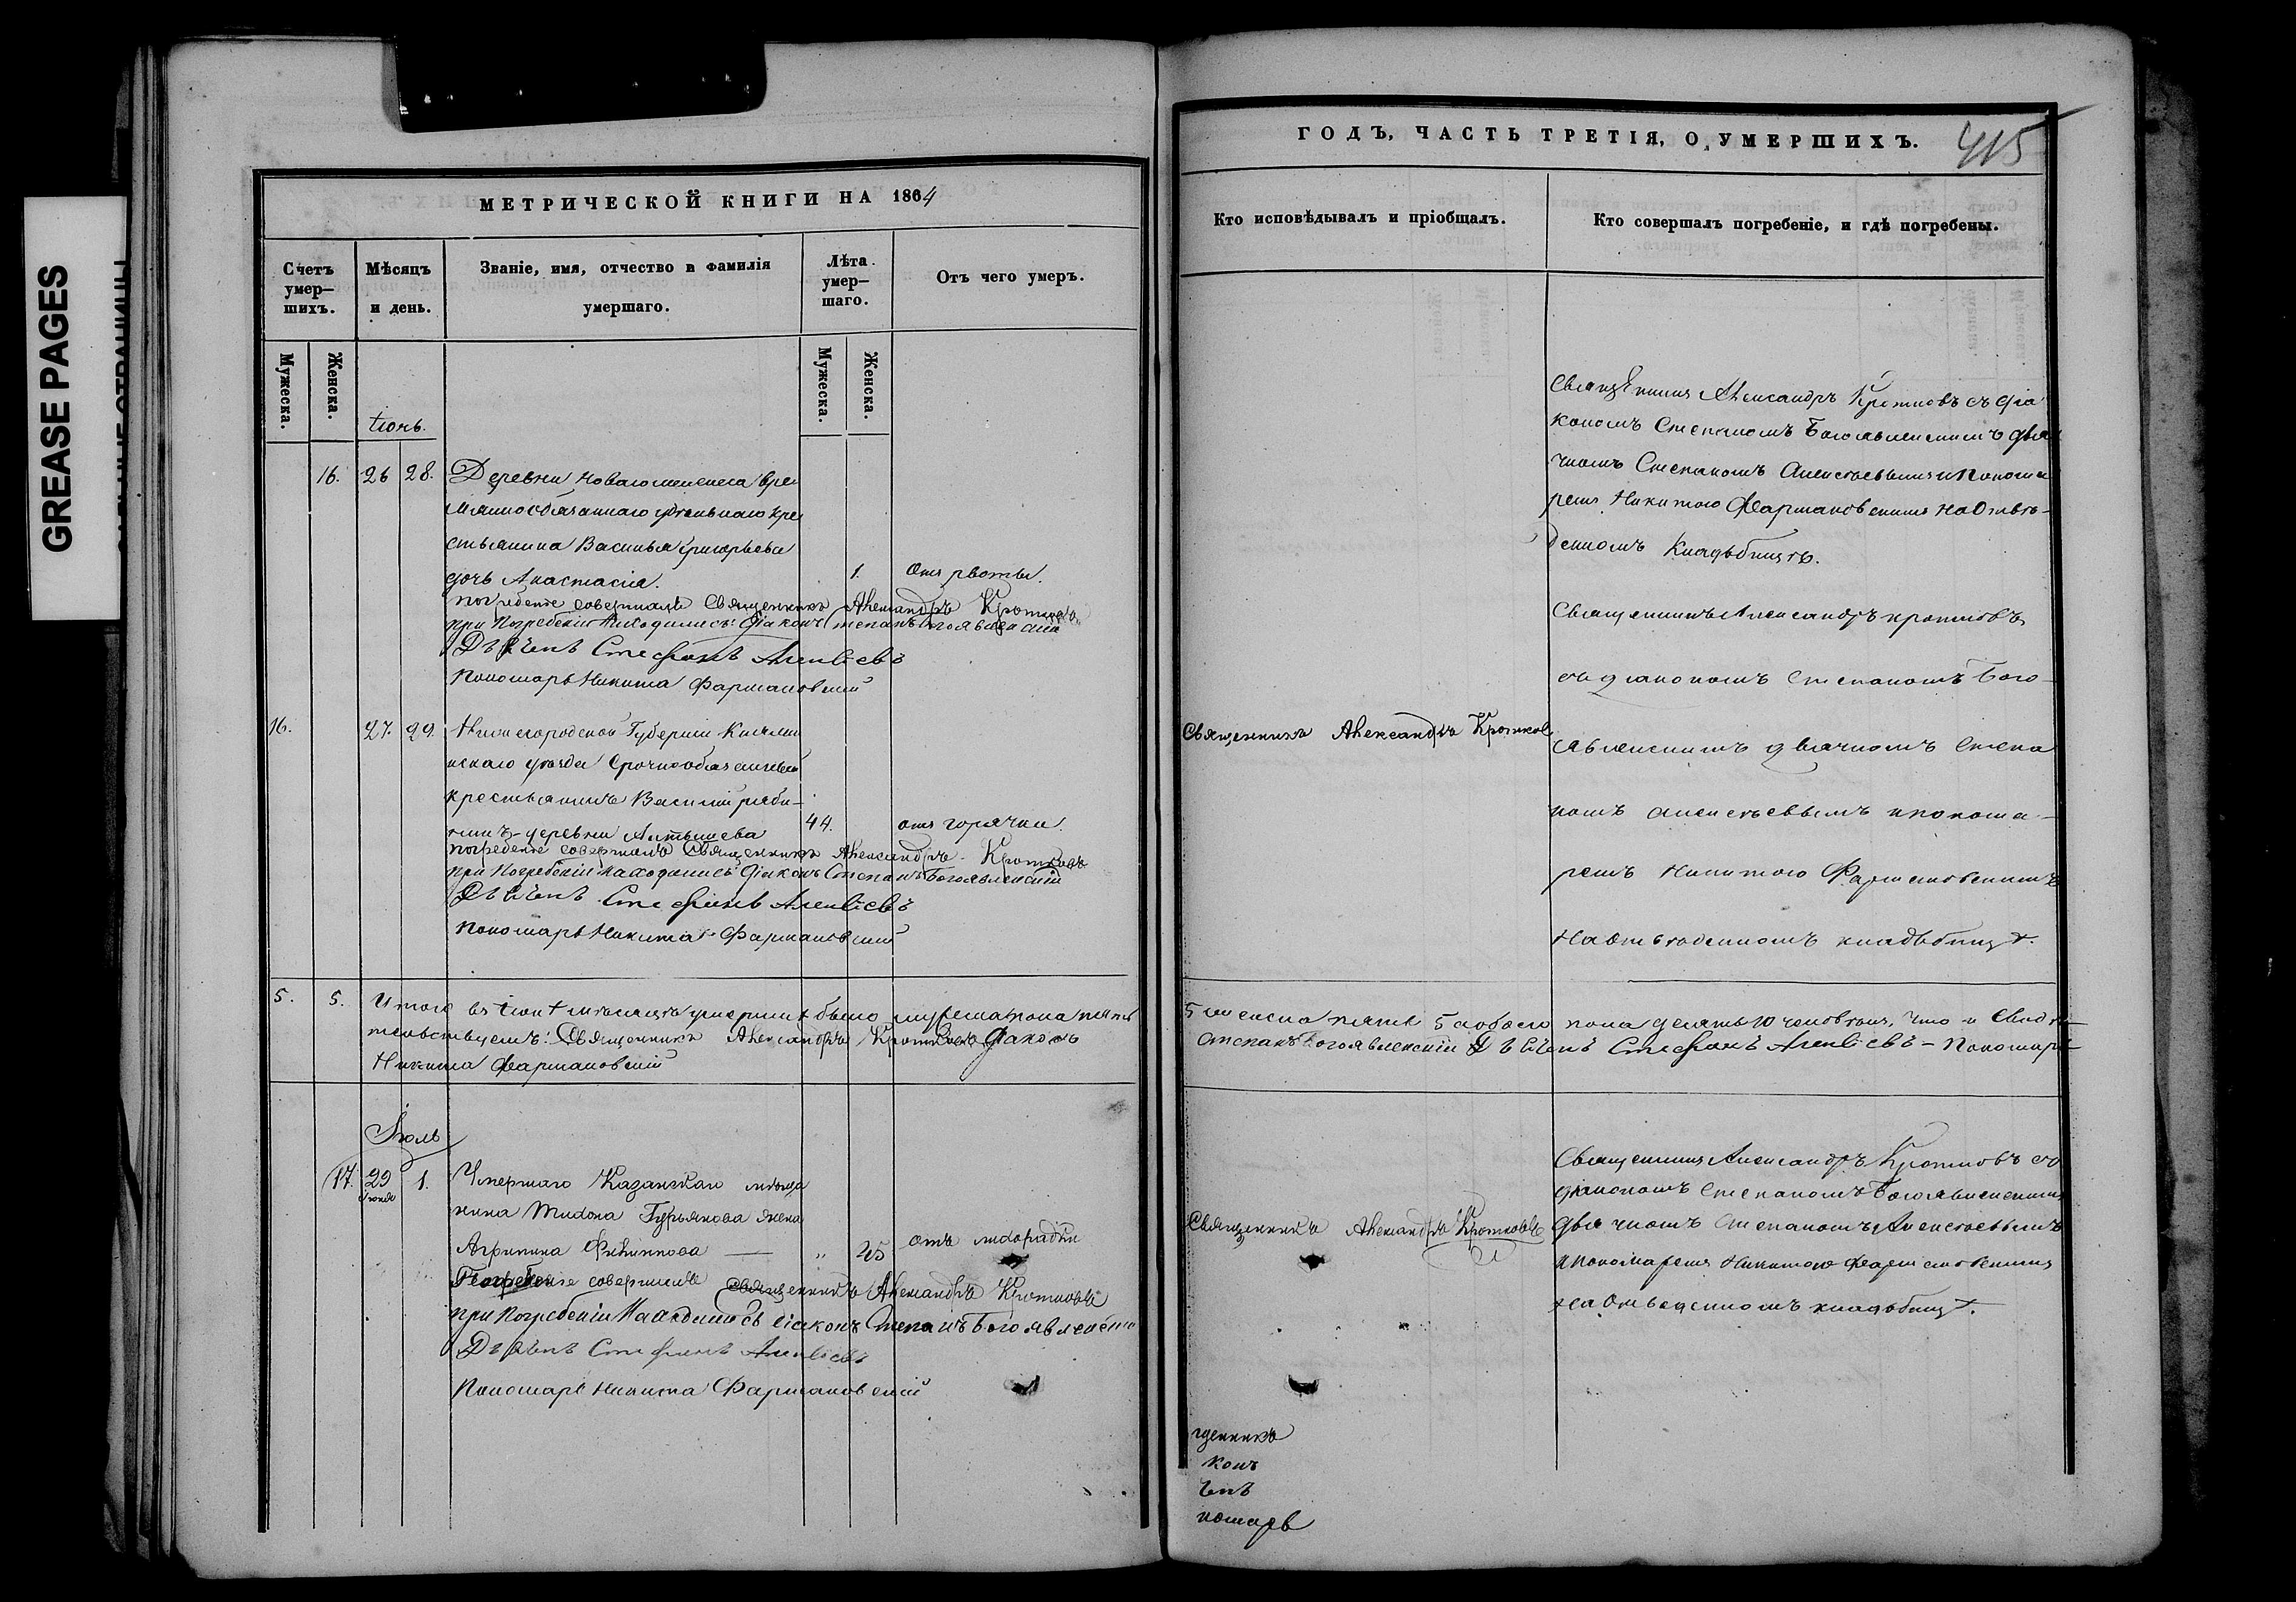 GREASE PAGES
МЕТРИЧЕСКОЙ КНИГИ НА 1864
Счетъ умер-шихъ.
Мѣсяцъ и день.
Званіе, имя, отчество и фамилія умершаго.
Лѣта умер-шаго.
Отъ чего умеръ.
Мужеска.
Женска.
Мужеска.
Женска.
Іюнь.
16. 26 28. Деревни Новаго вре
мяннообязаннаго удельнаго кре
стьянина Василья Григорьева
дочь Анастасія. 1. отъ рвоты.
погребеніе совершалъ Священникъ Александръ Кротковъ
при Погребеніи находились: Діаконъ Степанъ Богоявленскій
Дьячекъ Стефанъ Алексѣевъ
Пономарь Никита Фармаковскій
16. 27. 29. Нижегородской Губерніи Княгин
искаго уѣзда Срочнообязанный
крестьянинъ Василій
деревни 44. отъ горячки.
погребеніе совершалъ Священникъ Александръ Кротковъ
при Погребеніи находились Діаконъ Степанъ Богоявленскій
Дьячекъ Стефанъ Алексѣевъ
Пономарь Никита Фармаковскій
5. 5. Итого въ Іюнѣ мѣсяцѣ умершихъ было мужеска пола пять
тельствуемъ: Священникъ Александръ Кротковъ Діаконъ
Никита Фармаковскій
Іюль
17. 29 Іюня 1. Умершаго Казанскаго мѣща
нина Тихона Гурьянова жена
Агрипина Филиппова — „ 25 отъ лихорадки
Погребеніе совершалъ Священникъ Александръ Кротковъ
при Погребеніи Находились Діаконъ Степанъ Богоявленскій
Дьячекъ Стефанъ Алексѣевъ
Пономарь Никита Фармаковскій
ГОДЪ, ЧАСТЬ ТРЕТІЯ, О УМЕРШИХЪ.
415
Кто исповѣдывалъ и пріобщалъ.
Кто совершалъ погребеніе, и гдѣ погребены.
Священникъ Александръ Кротковъ съ діа
кономъ Степаномъ Богоявленскимъ дья
чкомъ Степаномъ Алексѣевымъ и Понома
ремъ Никитою Фармаковскимъ на Отвѣ-
денномъ Кладьбищѣ.
Священникъ Александръ Кротковъ
Священникъ Александръ Кротковъ
съ діакономъ Степаномъ Бого-
явленскимъ дьячкомъ Степа
номъ Алексѣевымъ и понома-
ремъ Никитою Фармаковскимъ
на отвѣденномъ кладьбищѣ.
5 женска пять 5 а обоего пола десять 10 человѣкъ, что и Свидѣ-
Степанъ Богоявленскій Дьячекъ Стефанъ Алексѣевъ – Пономарь
Священникъ Александръ Кротковъ
Священникъ Александръ Кротковъ съ
діакономъ Степаномъ Богоявленскимъ
дьячкомъ Степаномъ Алексѣевымъ
и пономаремъ Никитою Фармаковскимъ
на Отведенномъ кладьбищѣ.
щенникъ
конъ
чекъ
номарь